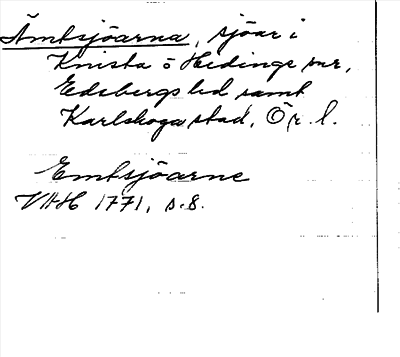 Ämtsjöarna, sjöar i
Knista o Hidinge snr,
Edsbergs hd samt
Karlskoga stad, Ör. l.
Emtsjöarne
VHH 1771, s. 8.